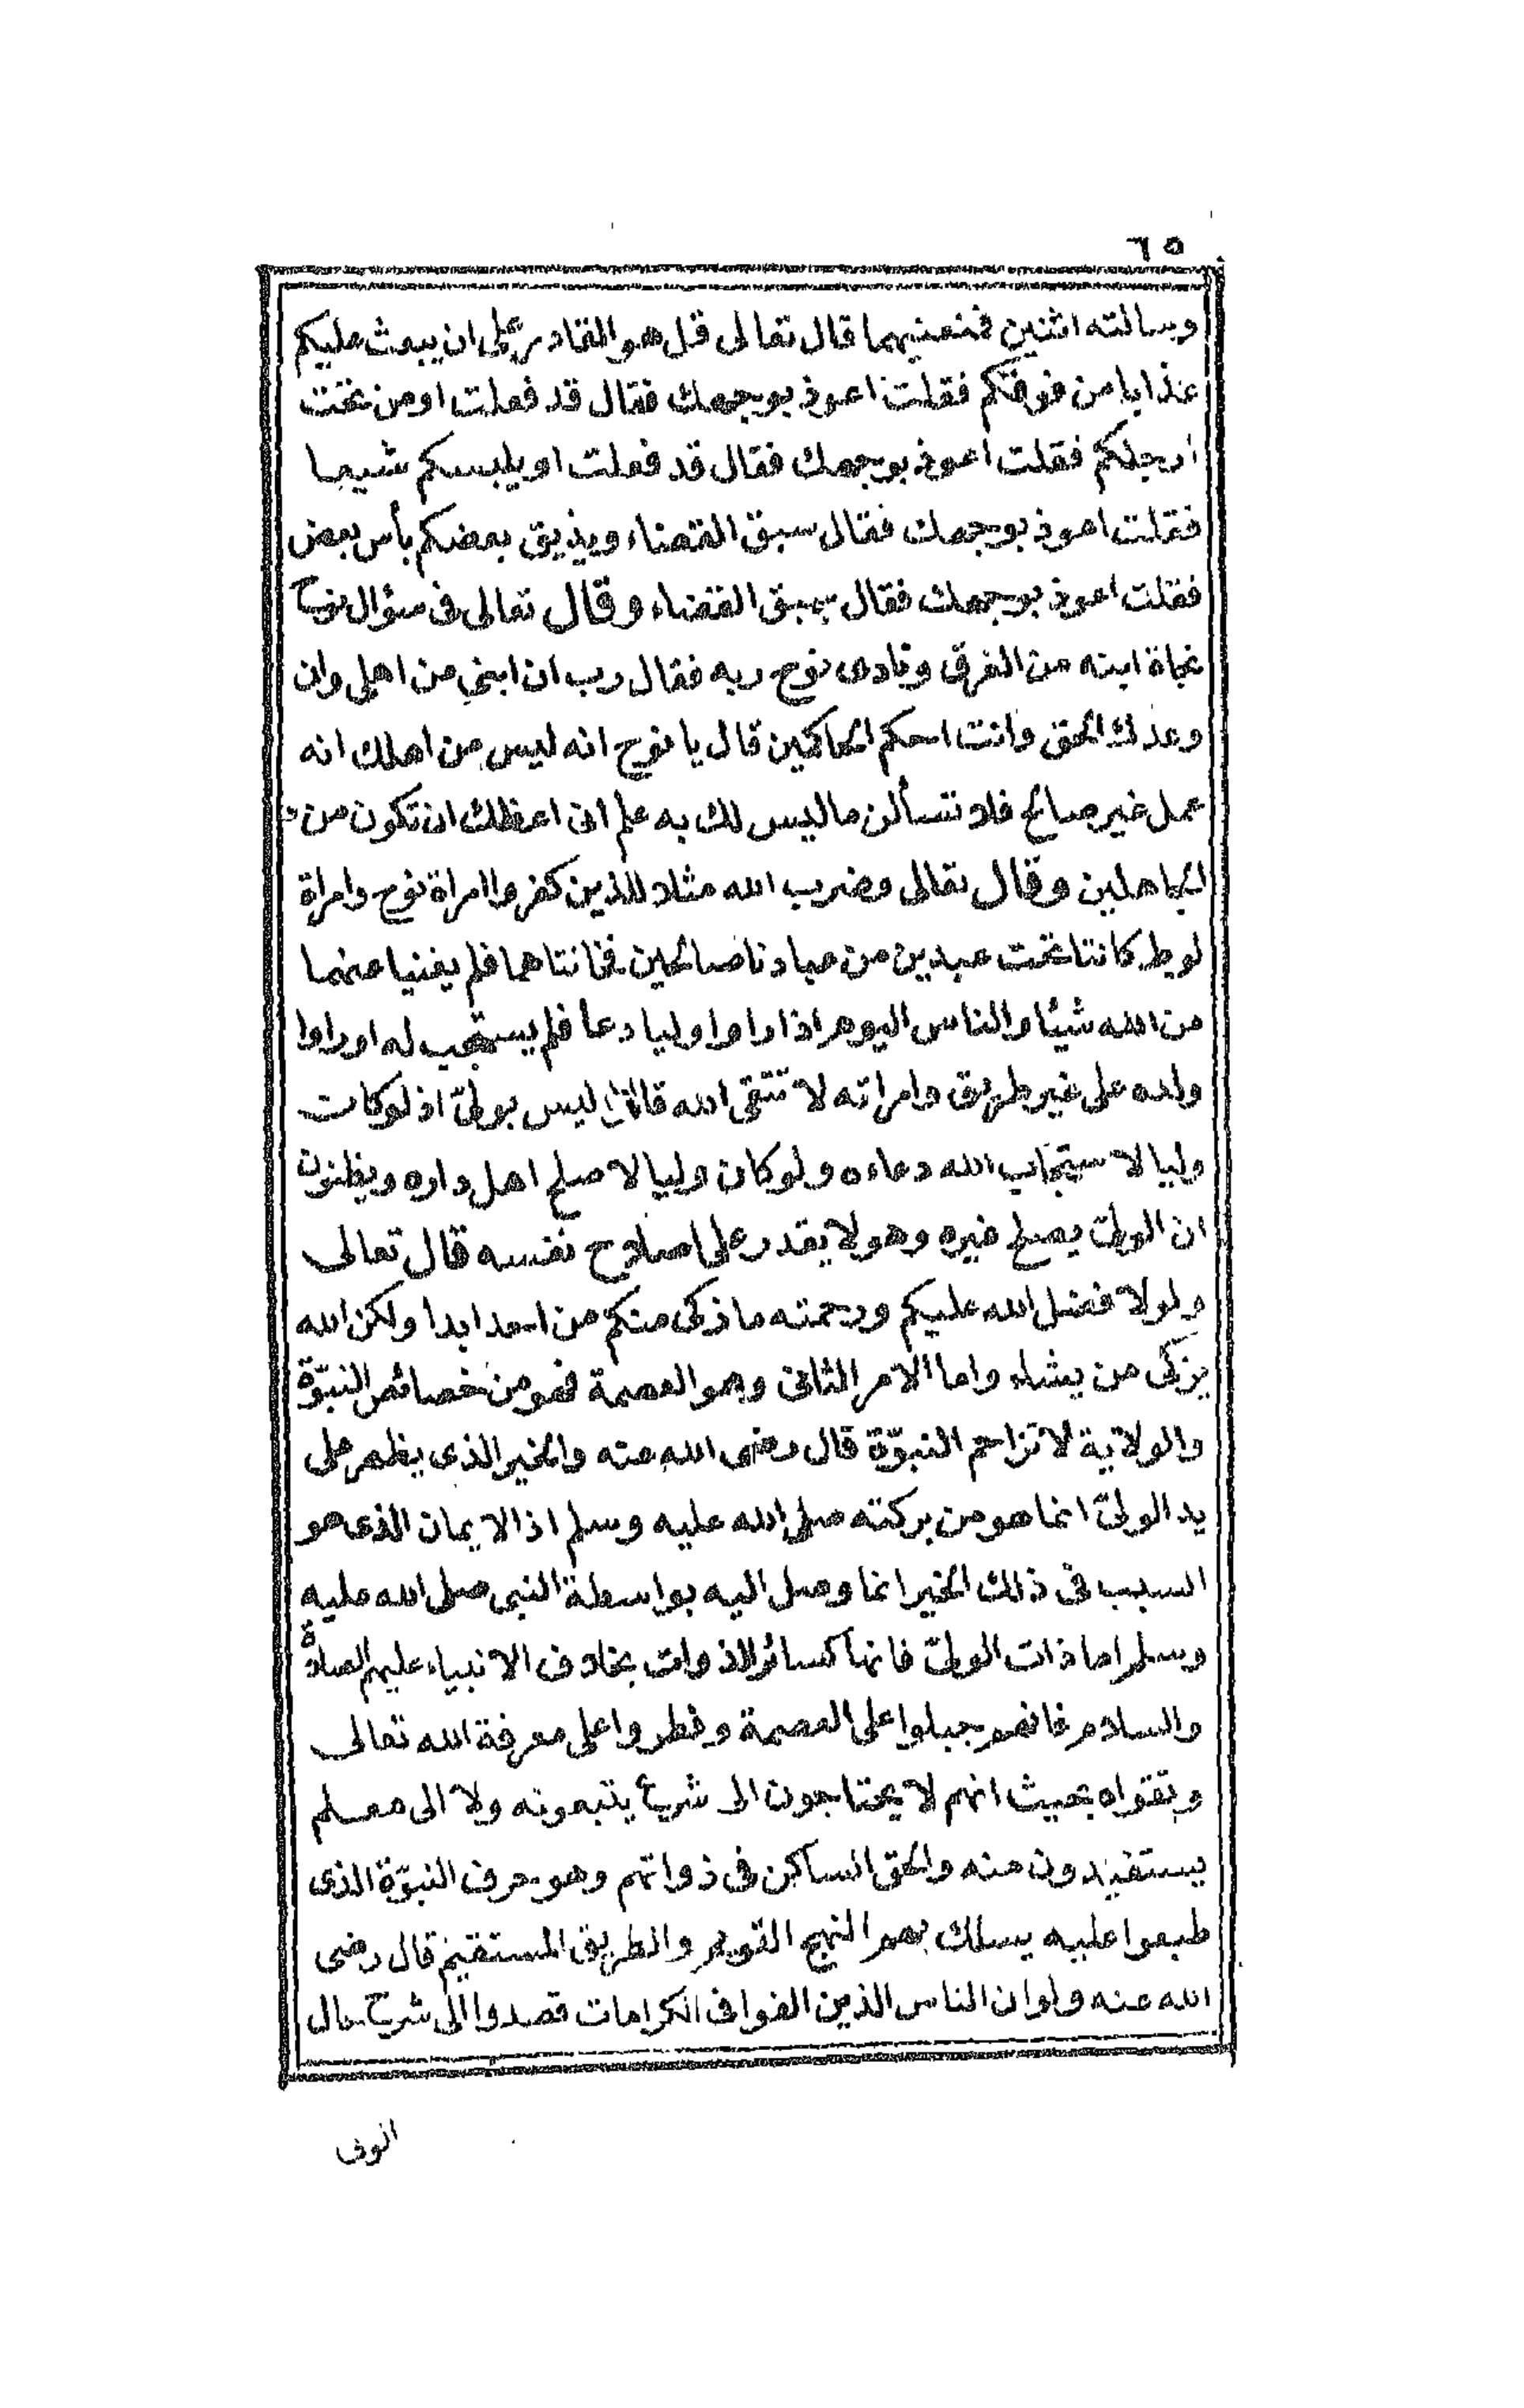 ٦٥
وسالته اثنين فمنعنيهما قال تعالى قل هو القادر على ان يبعث عليكم
عذابا من فوقكم فقلت اعوذ بوجهك فقال قد فعلت او من تحت
ارجلكم فقلت اعوذ بوجهك فقال قد فعلت او يلبسكم شيعا
فقلت اعوذ بوجهك فقال سبق القضاء ويذيق بعضكم بأس بعض
فقلت اعوذ بوجهك فقال سبق القضاء وقال تعالى فى سؤال نوح
نجاة ابنه من الغرق ونادى نوح ربه فقال رب ان ابنى من اهلى وان
وعدك الحق وانت احكم الحاكمين قال يا نوح انه ليس من اهلك انه
عمل غير صالح فلا تسألن ما ليس لك به علم انى اعظك ان تكون من
الجاهلين وقال تعالى وضرب الله مثلا للذين كفروا امراة نوح وامراة
لوط كانتا تحت عبدين من عبادنا صالحين فخانتاهما فلم يغنيا عنهما
من الله شيئا والناس اليوم اذا راوا وليا دعا فلم يستجب له او راوا
ولده على غير طريق وامراته لا تتقى الله قالوا ليس بولىّ اذ لو كان
وليا لاستجاب الله دعاءه ولو كان وليا لاصلح اهل داره ويظنون
ان الولىّ يصلح غيره وهو لا يقدر على اصلاح نفسه قال تعالى
ولولا فضل الله عليكم ورحمته ما زكى منكم من احد ابدا ولكن الله
يزكى من يشاء واما الامر الثانى وهو العصمة فهو من خصائص النبوّة
والولاية لا تزاحم النبوّة قال رضى الله عنه والخير الذى يظهر على
يد الولىّ انما هو من بركته صلى الله عليه وسلم اذ الايمان الذى هو
السبب فى ذلك الخير انما وصل اليه بواسطة النبى صلى الله عليه
وسلم اما ذات الولىّ فانها كسائر الذوات بخلاف الانبياء عليهم الصلاة
والسلام فانهم جبلوا على العصمة وفطروا على معرفة الله تعالى
وتقواه بحيث انهم لا يحتاجون الى شرع يتبعونه ولا الى معلم
يستفيدون منه والحق الساكن فى ذواتهم وهو حرف النبوّة الذى
طبعوا عليه يسلك بهم النهج القويم والطريق المستقيم قال رضى
الله عنه ولو ان الناس الذين الفوا فى الكرامات قصدوا الى شرح حال
الولى